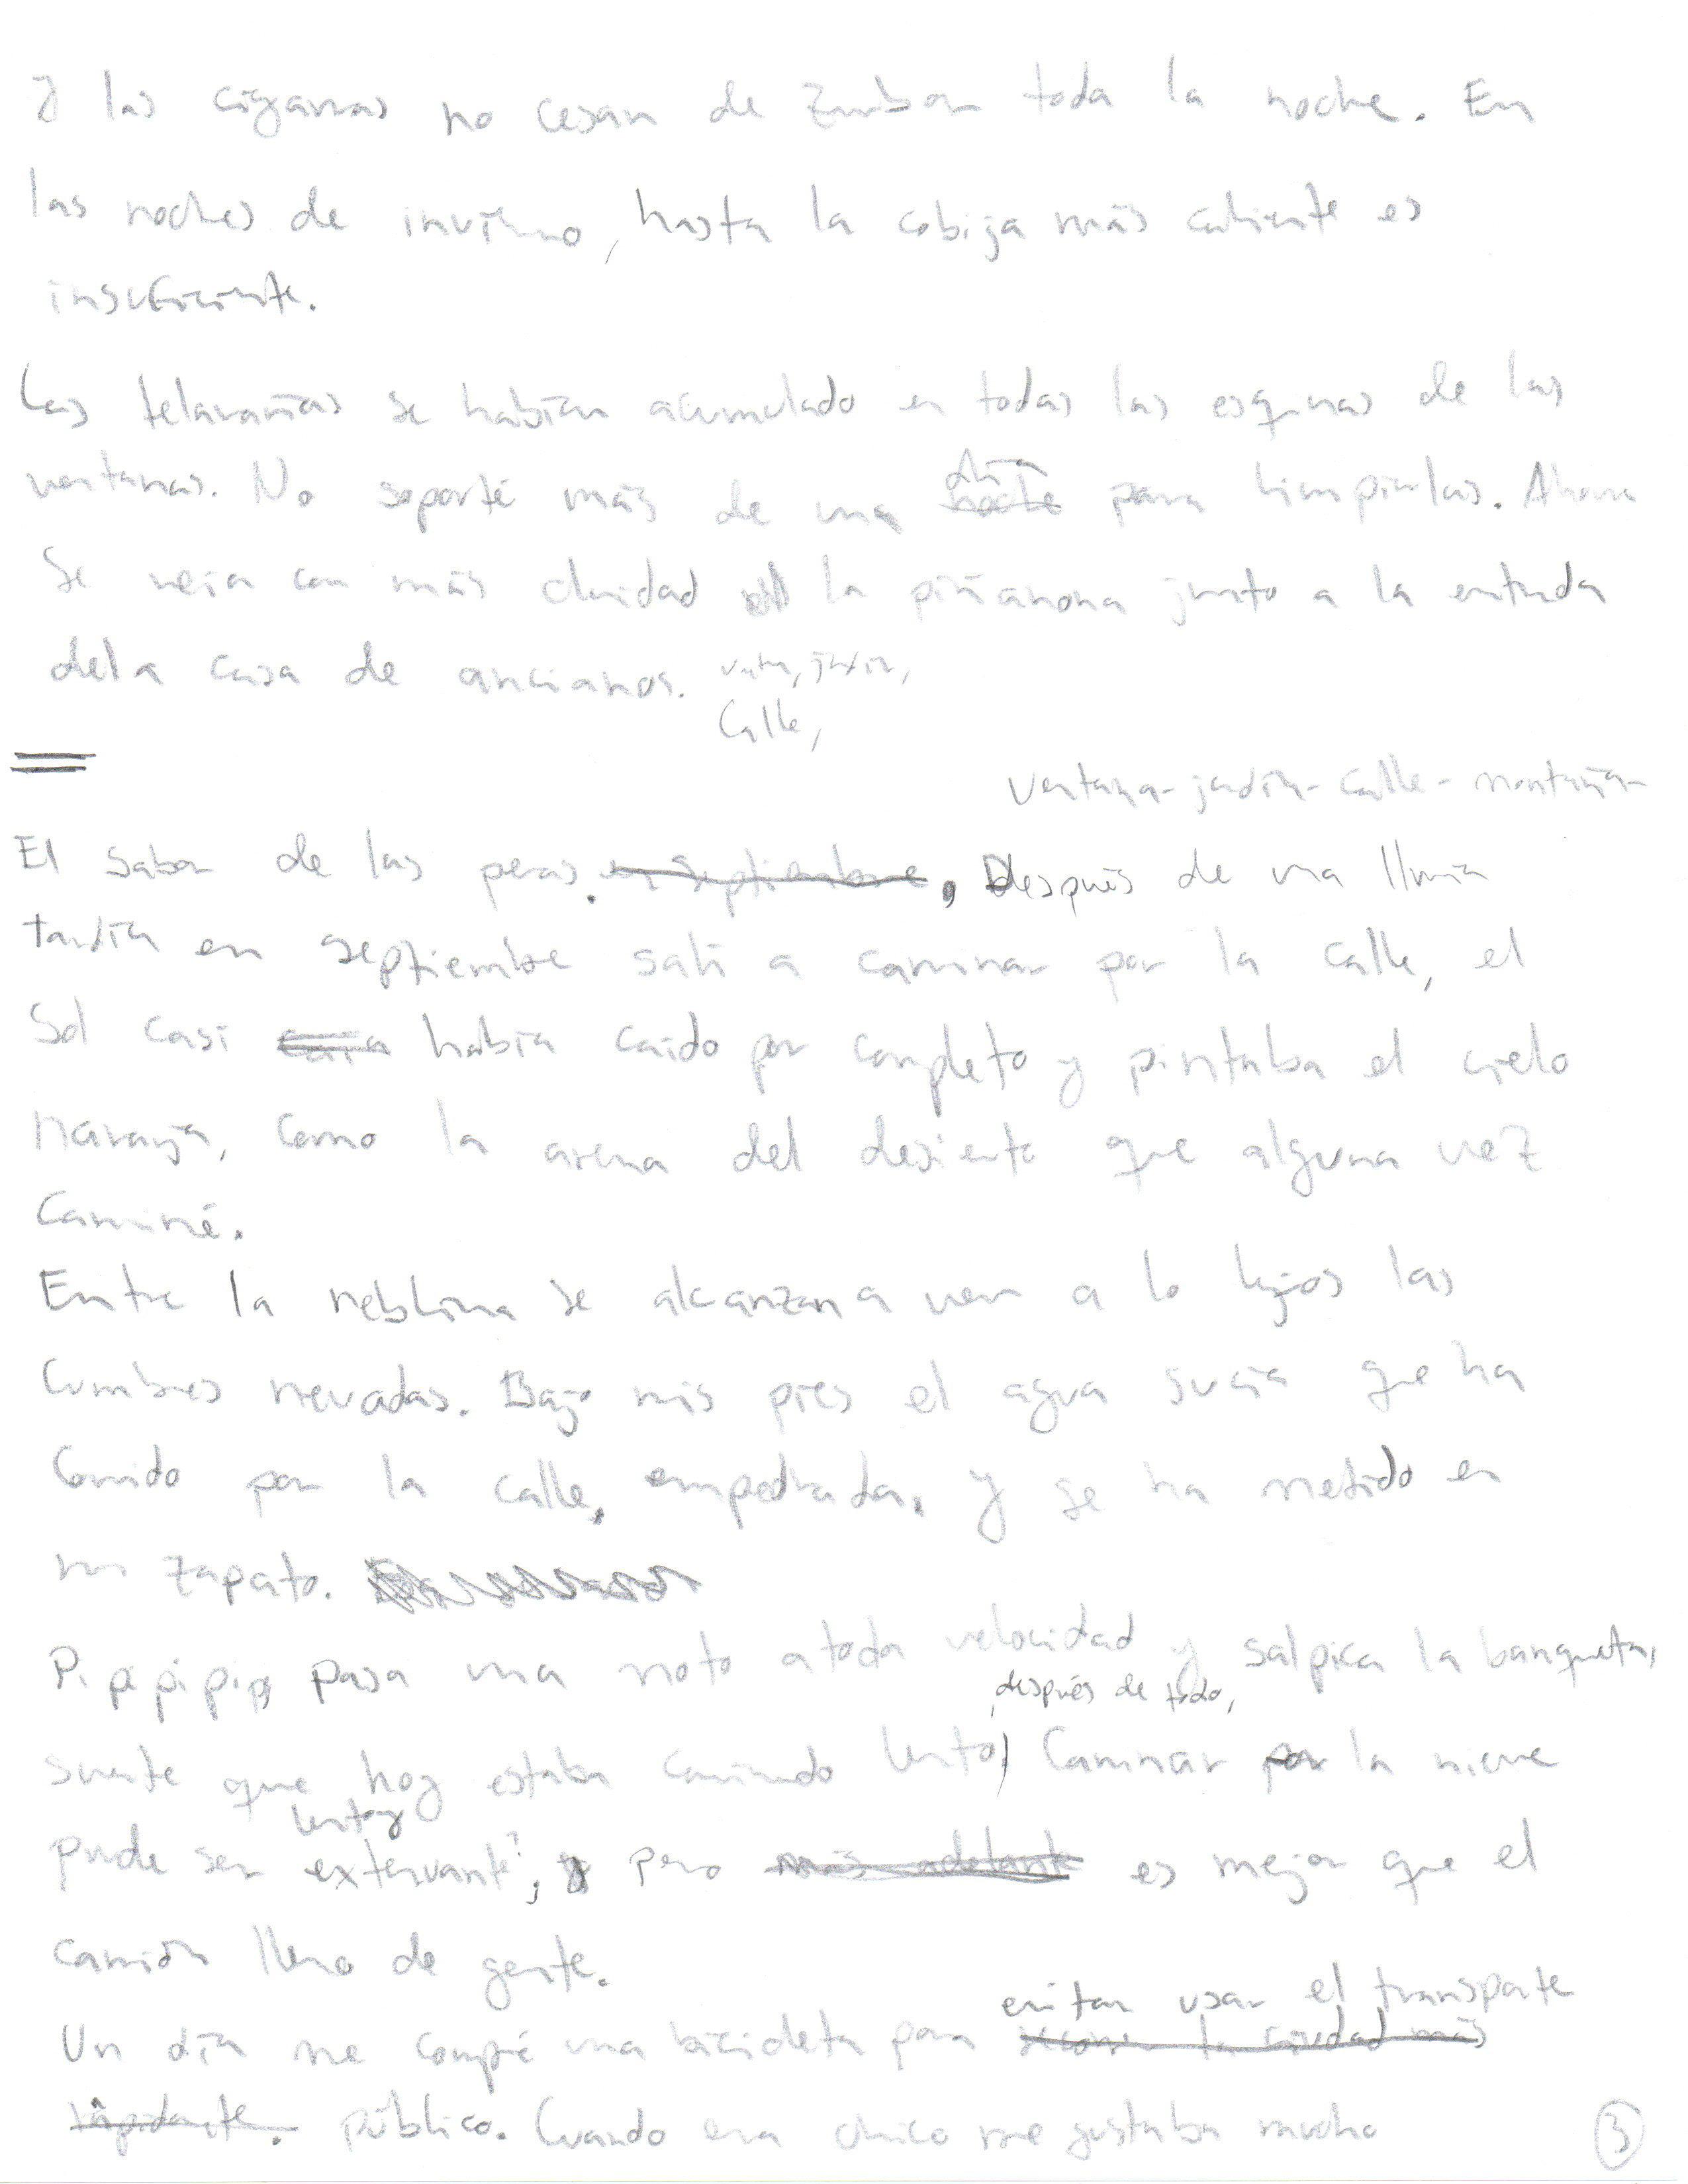 y las cigarras no cesan de zumbar toda la noche. En
las noches de invierno, hasta la cobija más caliente es
insuficiente.
Las telarañas se habían acumulado en todas las esquinas de las
ventanas. No soporté más de una noche para limpiarlas. Ahora
se veía con más claridad la piñanona junto a la entrada
dela casa de ancianos. jardín,
Calle,
Ventana-jardín-calle-montaña-
El sabor de las peras. en septiembre, Después de una lluvia
tardía en septiembre salí a caminar por la calle, el
sol casi caía había caído por completo y pintaba el cielo
naranja, como la arena del desierto que alguna vez
Caminé.
Entre la neblina se alcanzan a ver a lo lejos las
cumbres nevadas. Bajo mis pies el agua sucia que ha
corrido por la calle, empedrada, y se ha metido en
mi zapato.
Pi pi pi pip, pasa una moto a toda velocidad y salpica la banqueta,
, después de todo,
suerte que hoy estaba caminando lento, Caminar por la nieve
lento y
puede ser extenuante; y pero más adelante es mejor que el
camión lleno de gente.
evitar usar el transporte
Un día me compré una bicicleta para recorrer la ciudad más
rápidamente. público. Cuando era chico me gustaba mucho
3